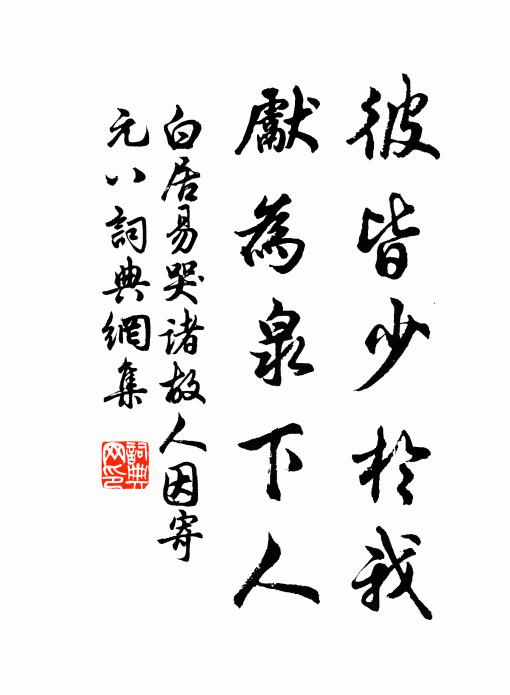 彼皆少於我
獻為泉下人
白居易哭诸故人因寄
元八詞典網集
詞典
网印